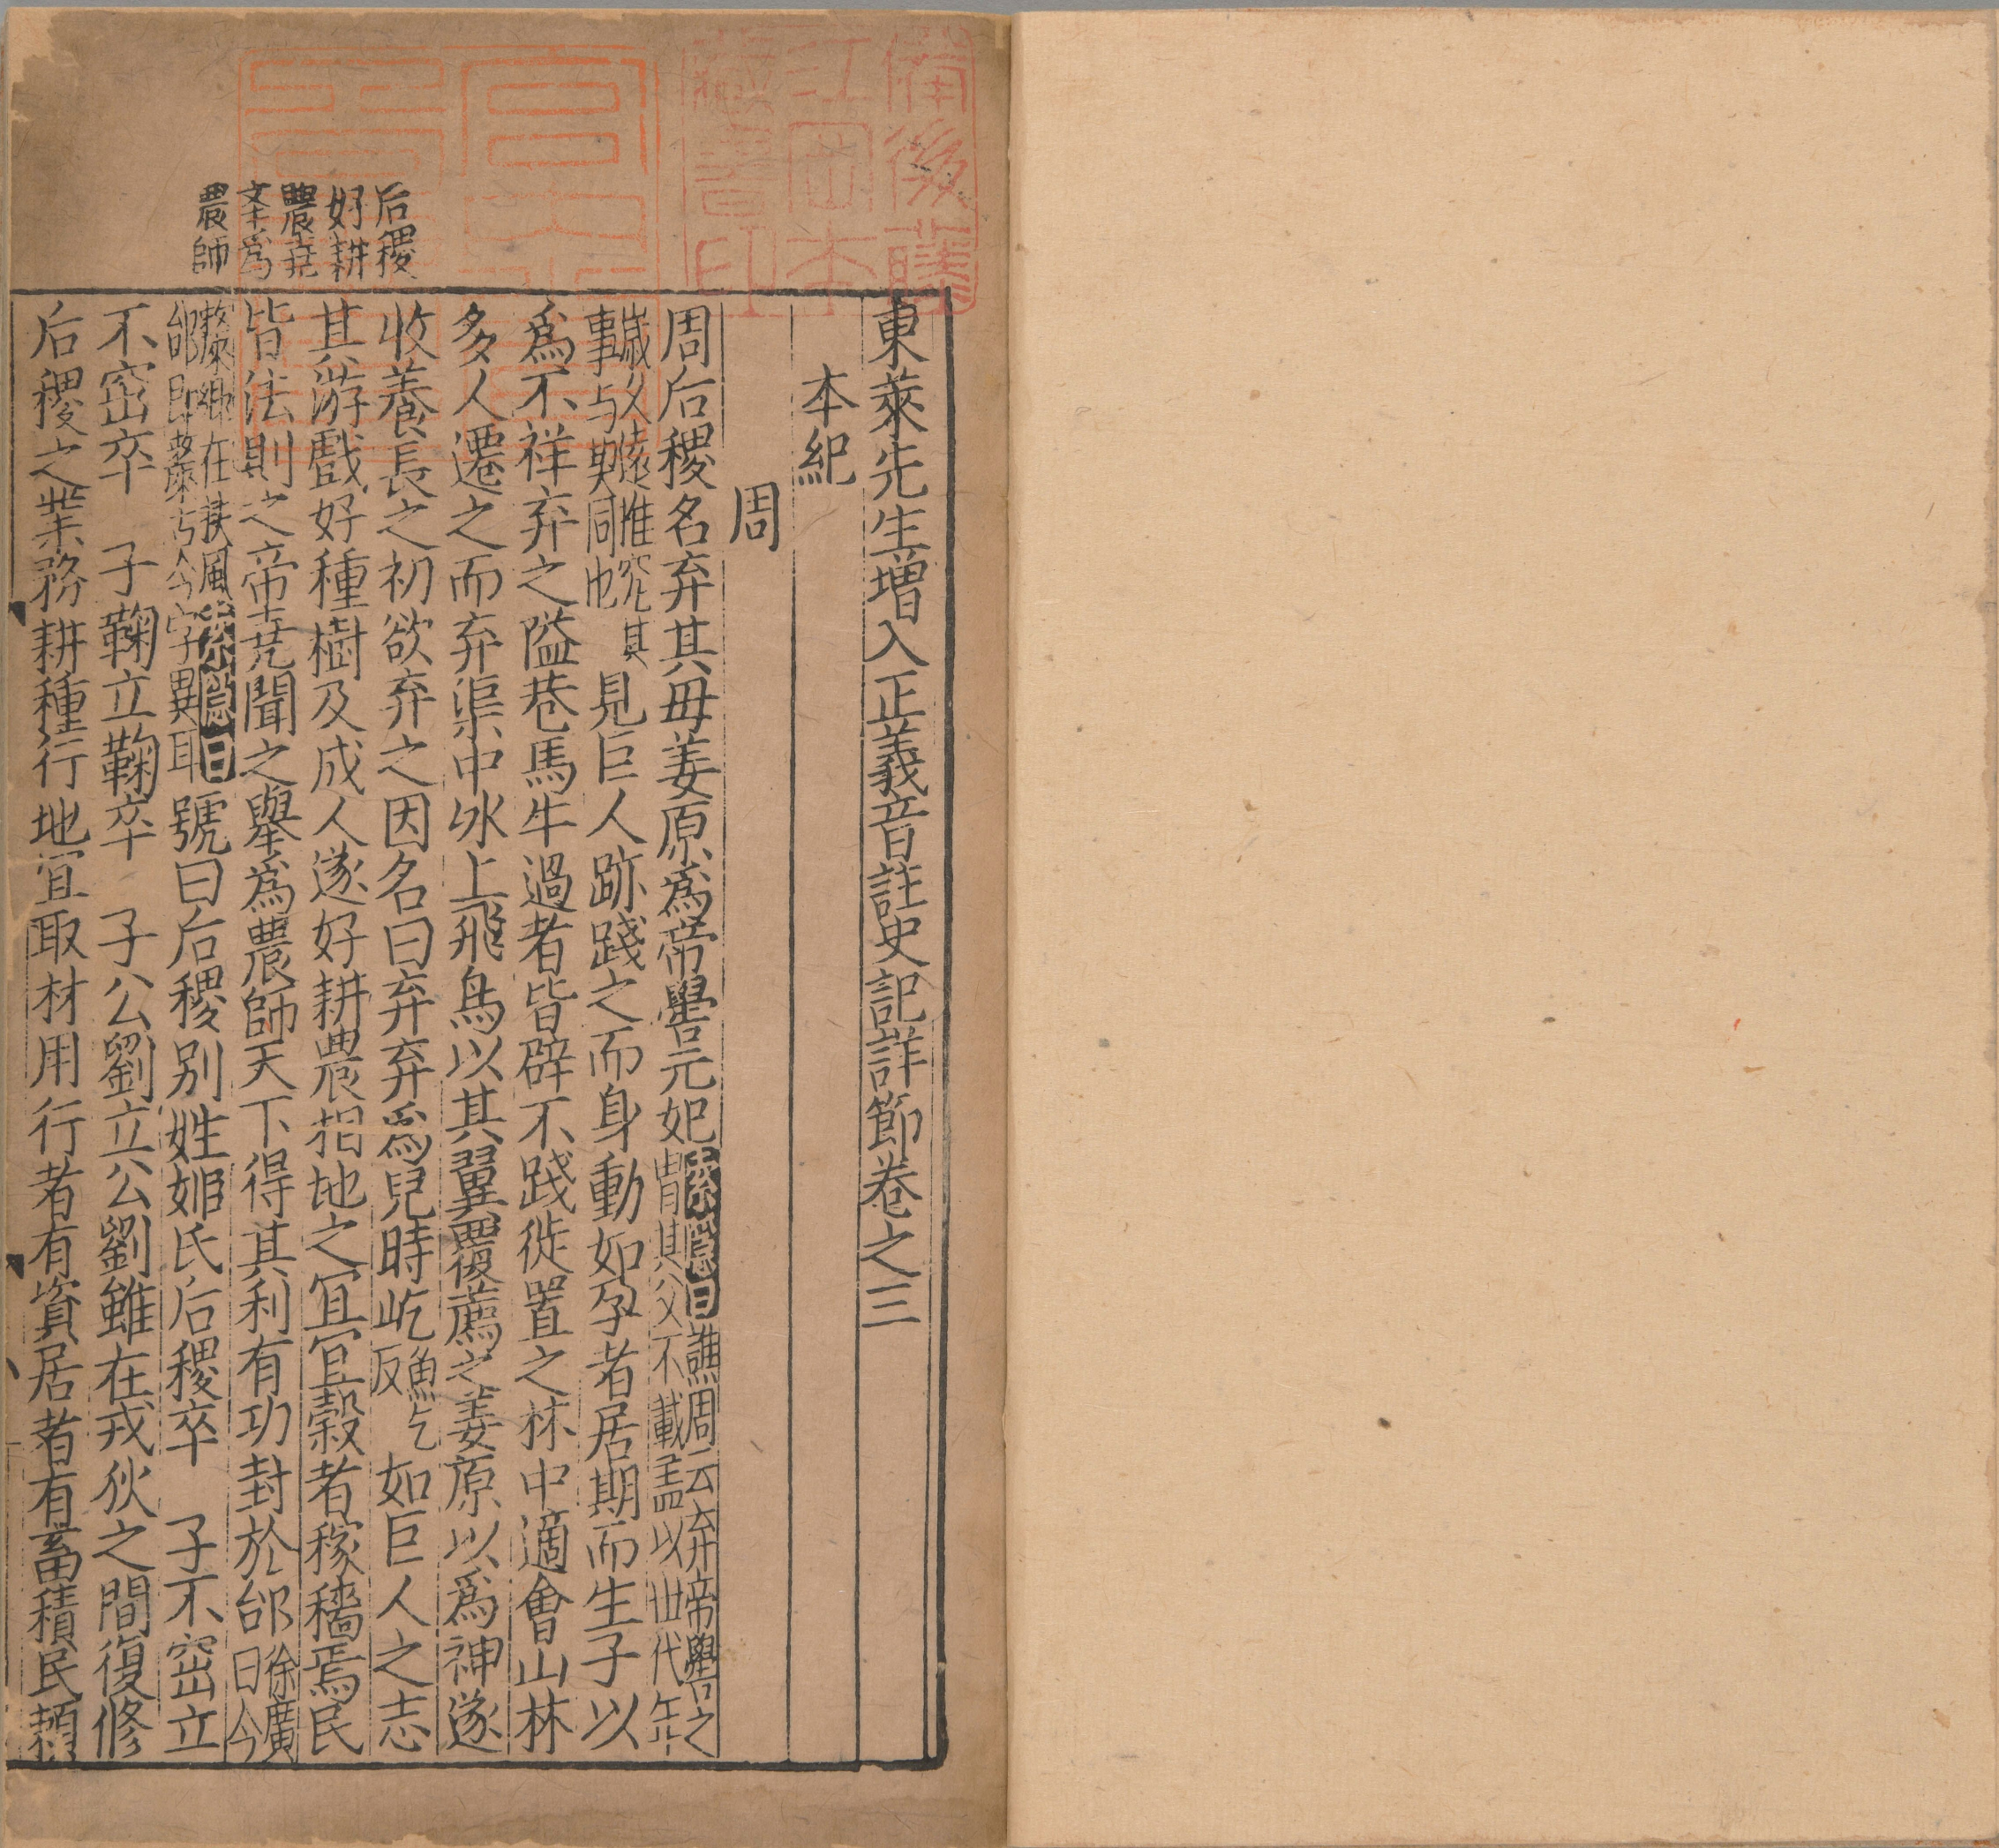 東萊先生增入正義音註史記詳節卷之三
本紀
周
周后稷名弃其母姜原爲帝嚳元妃索隱曰譙周云弃帝嚳之
胄其父不載盖以世代年
歲久遠惟究其
事与契同也見巨人跡踐之而身動如孕者居期而生子以
爲不祥弃之隘巷馬牛過者皆辟不踐徙置之林中適會山林
多人遷之而弃渠中冰上飛鳥以其翼覆薦之姜原以爲神遂
收養長之初欲弃之因名曰弃弃爲兒時屹魚乞
反如巨人之志
其游戲好種樹及成人遂好耕農相地之宜宜穀者稼穡焉民
皆法則之帝堯聞之舉爲農師天下得其利有功封於邰徐廣
曰今
斄鄉在扶風索隱曰
邰即斄古今字異耳號曰后稷別姓姬氏后稷卒 子不窋立
不窋卒 子鞠立鞠卒 子公劉立公劉雖在戎狄之間復修
后稷之業務耕種行地宜取材用行者有資居者有畜積民頼
后稷
好耕
農堯
舉爲
農師
備後藤
江田本
藏書印